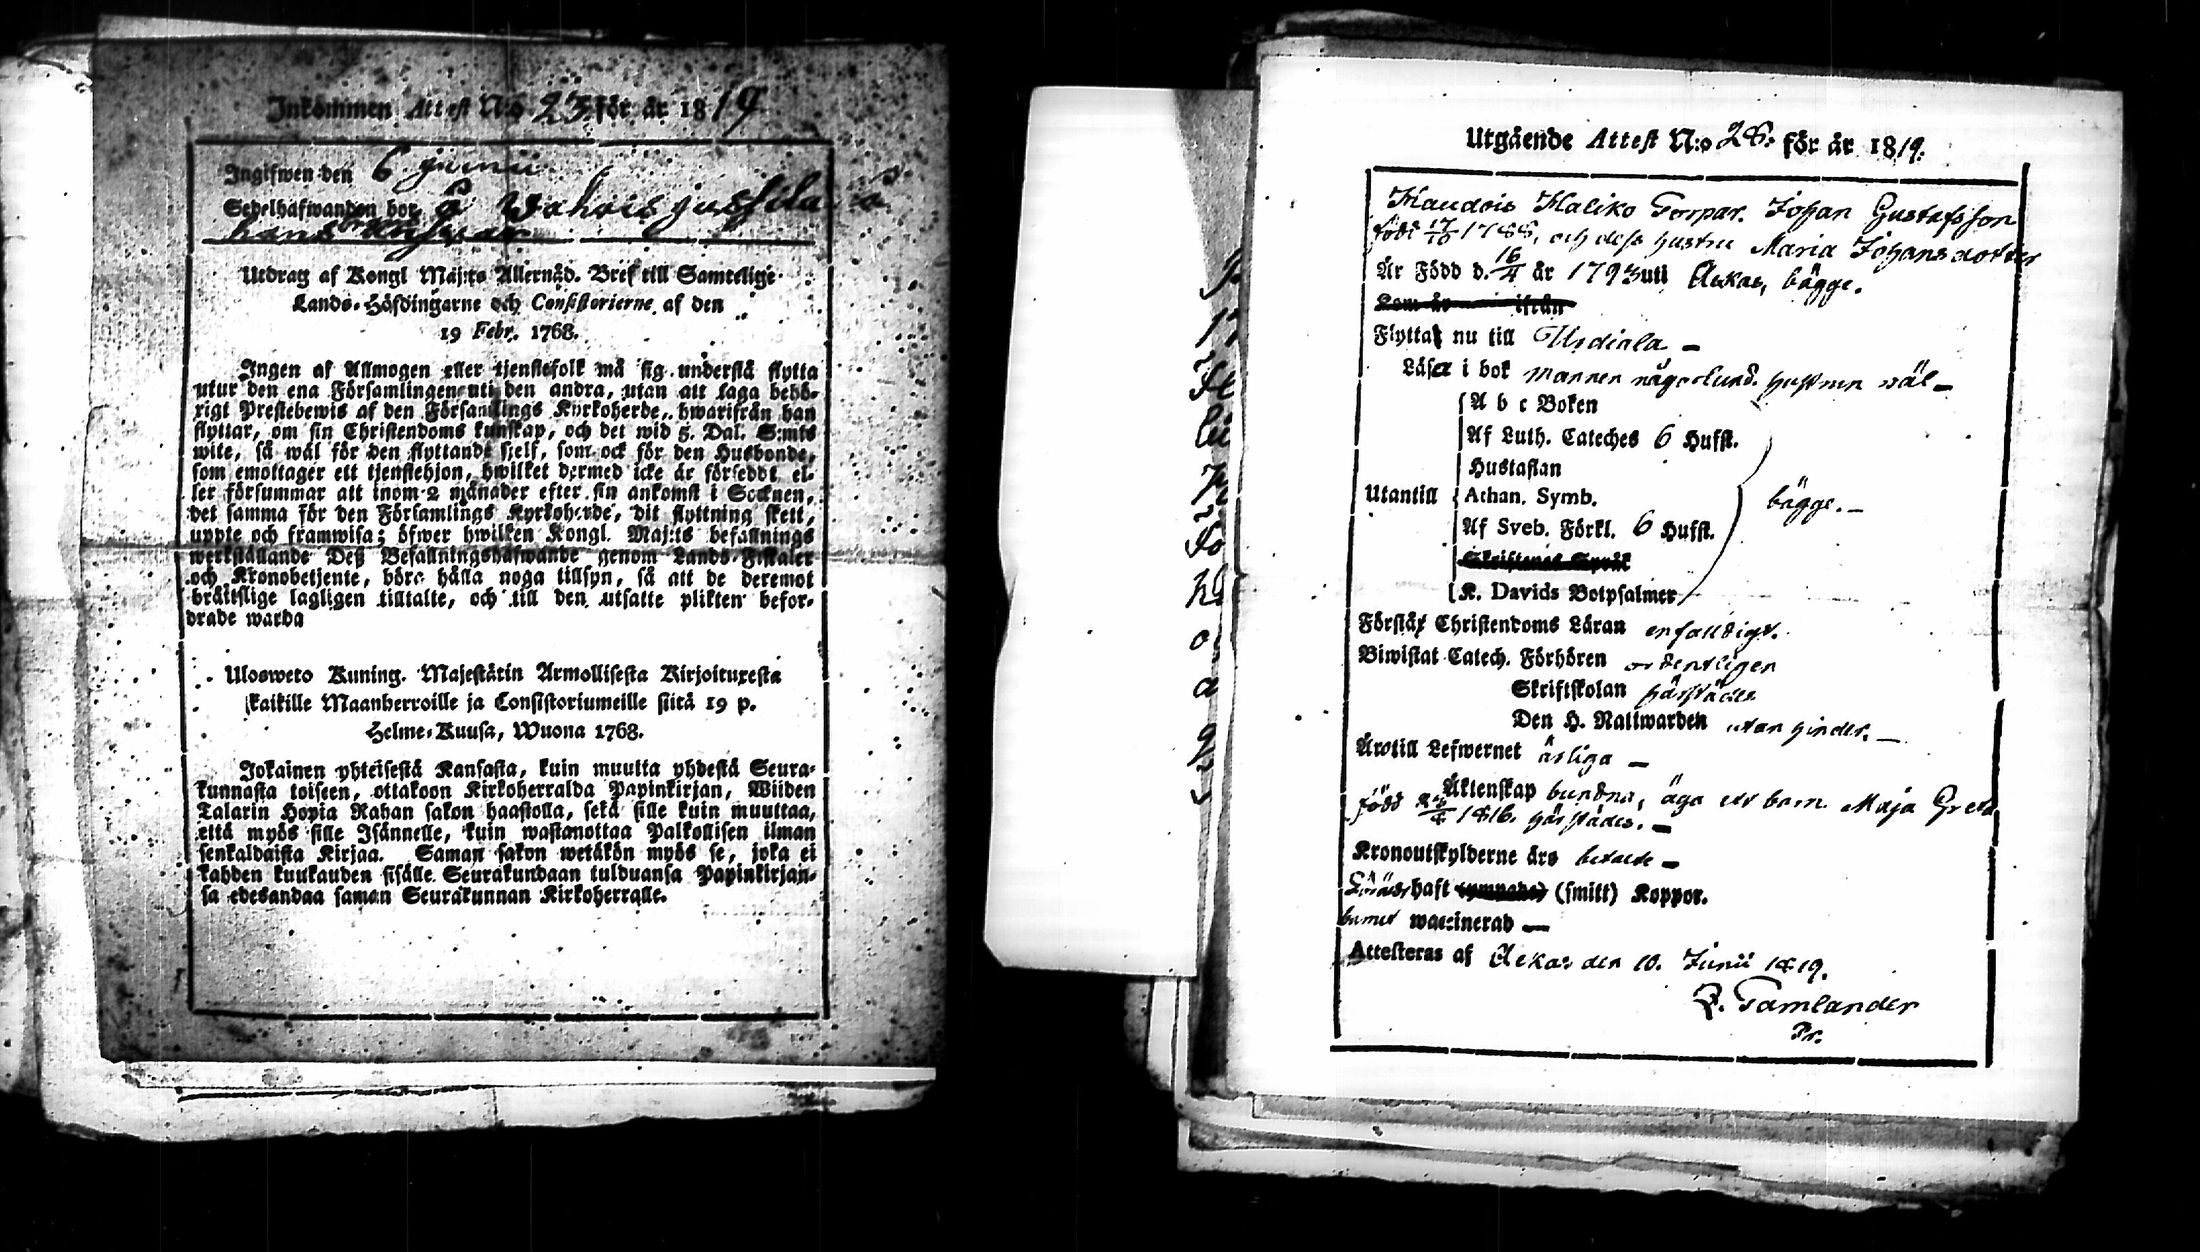 Inkommen Attest N:o 23 för år 1819
Ingifwen den 6 junii
Sedelhafwanden bor på
hans
Utdrag af Kongl Maj:ts Allernåd. Bref till Samtelige
Lands-Höfdingarne och Consistorierne af den
19 Febr. 1768.
Ingen af Allmogen eller tjenstefolk må sig understå flytta
utur den ena Församlingen uti den andra, utan att taga behö-
rigt Prestebewis af den Församlings Kyrkoherde, hwarifrån han
flyttar, om sin Christendoms kunskap, och det wid 5. Dal. S:mts
wite, så wäl för den flyttande sjelf, som ock för den Husbonde,
som emottager ett tjenstehjon, hwilket dermed icke är försedt, el-
ler försummar att inom 2 månader efter sin ankomst i Socknen,
det samma för den Församlings Kyrkoherde, dit flyttning skett,
uppte och framwisa; öfwer hwilken Kongl. Maj:ts befallnings
werkställande Deß Befallningshafwande genom Lands-Fiskaler
och Kronobetjente, böra hålla noga tillsyn, så att de deremot
bråttslige lagligen tilltalte, och till den utsatte plikten befor-
drade warda
Ulosweto Kuning. Majestätin Armollisesta Kirjoituxesta
kaikille Maanherroille ja Consistoriumeille siitä 19 p.
Helme-Kuusa, Wuona 1768.
Jokainen yhteisestä Kansasta, kuin muutta yhdestä Seura-
kunnasta toiseen, ottakoon Kirkoherralda Papinkirjan, Wiiden
Talarin Hopia Rahan sakon haastolla, sekä sille kuin muuttaa,
että myös sille Isännelle, kuin wastanottaa Palkollisen ilman
senkaldaista Kirjaa. Saman sakon wetäkön myös se, joka ei
kahden kuukauden sisälle Seurakundaan tulduansa Papinkirjan-
sa edesandaa saman Seurakunnan Kirkoherralle.
Utgående Attest N:o 28. för år 1819.
Haudois Haliko Torpar. Johan Gustafsson
född 17/6 1788, och dess hustru Maria Johansdotter
Är Född d. 16/4 år 1793 uti Ackas, bägge.
Kom år ifrån
Flyttat nu till Urdiala
Läsa i bok mannen någorlund. hustrun väl
A b c Boken
Af Luth. Cateches 6 Hufst.
Hustaflan
Utantill Athan. Symb. bägge.
Af Sveb. Förkl. 6 Hufst.
Skriftenes Språk
K. Davids Botpsalmer
Förstår Christendoms Läran enfaldigt.
Biwistat Catech. Förhören ordentligen
Skriftskolan härstädes
Den H. Nattwarden utan hinder.
Äro till Lefwernet ärliga
Äktenskap bundna, äga ett barn Maja Greta
född 23/4 1816. härstädes.
Kronoutskylderne äro betalte
haft (ympade) (smitt) Koppor.
barnet waccinerad
Attesteras af Ackas den 10. Junii 1819.
Tamlander
Pr.